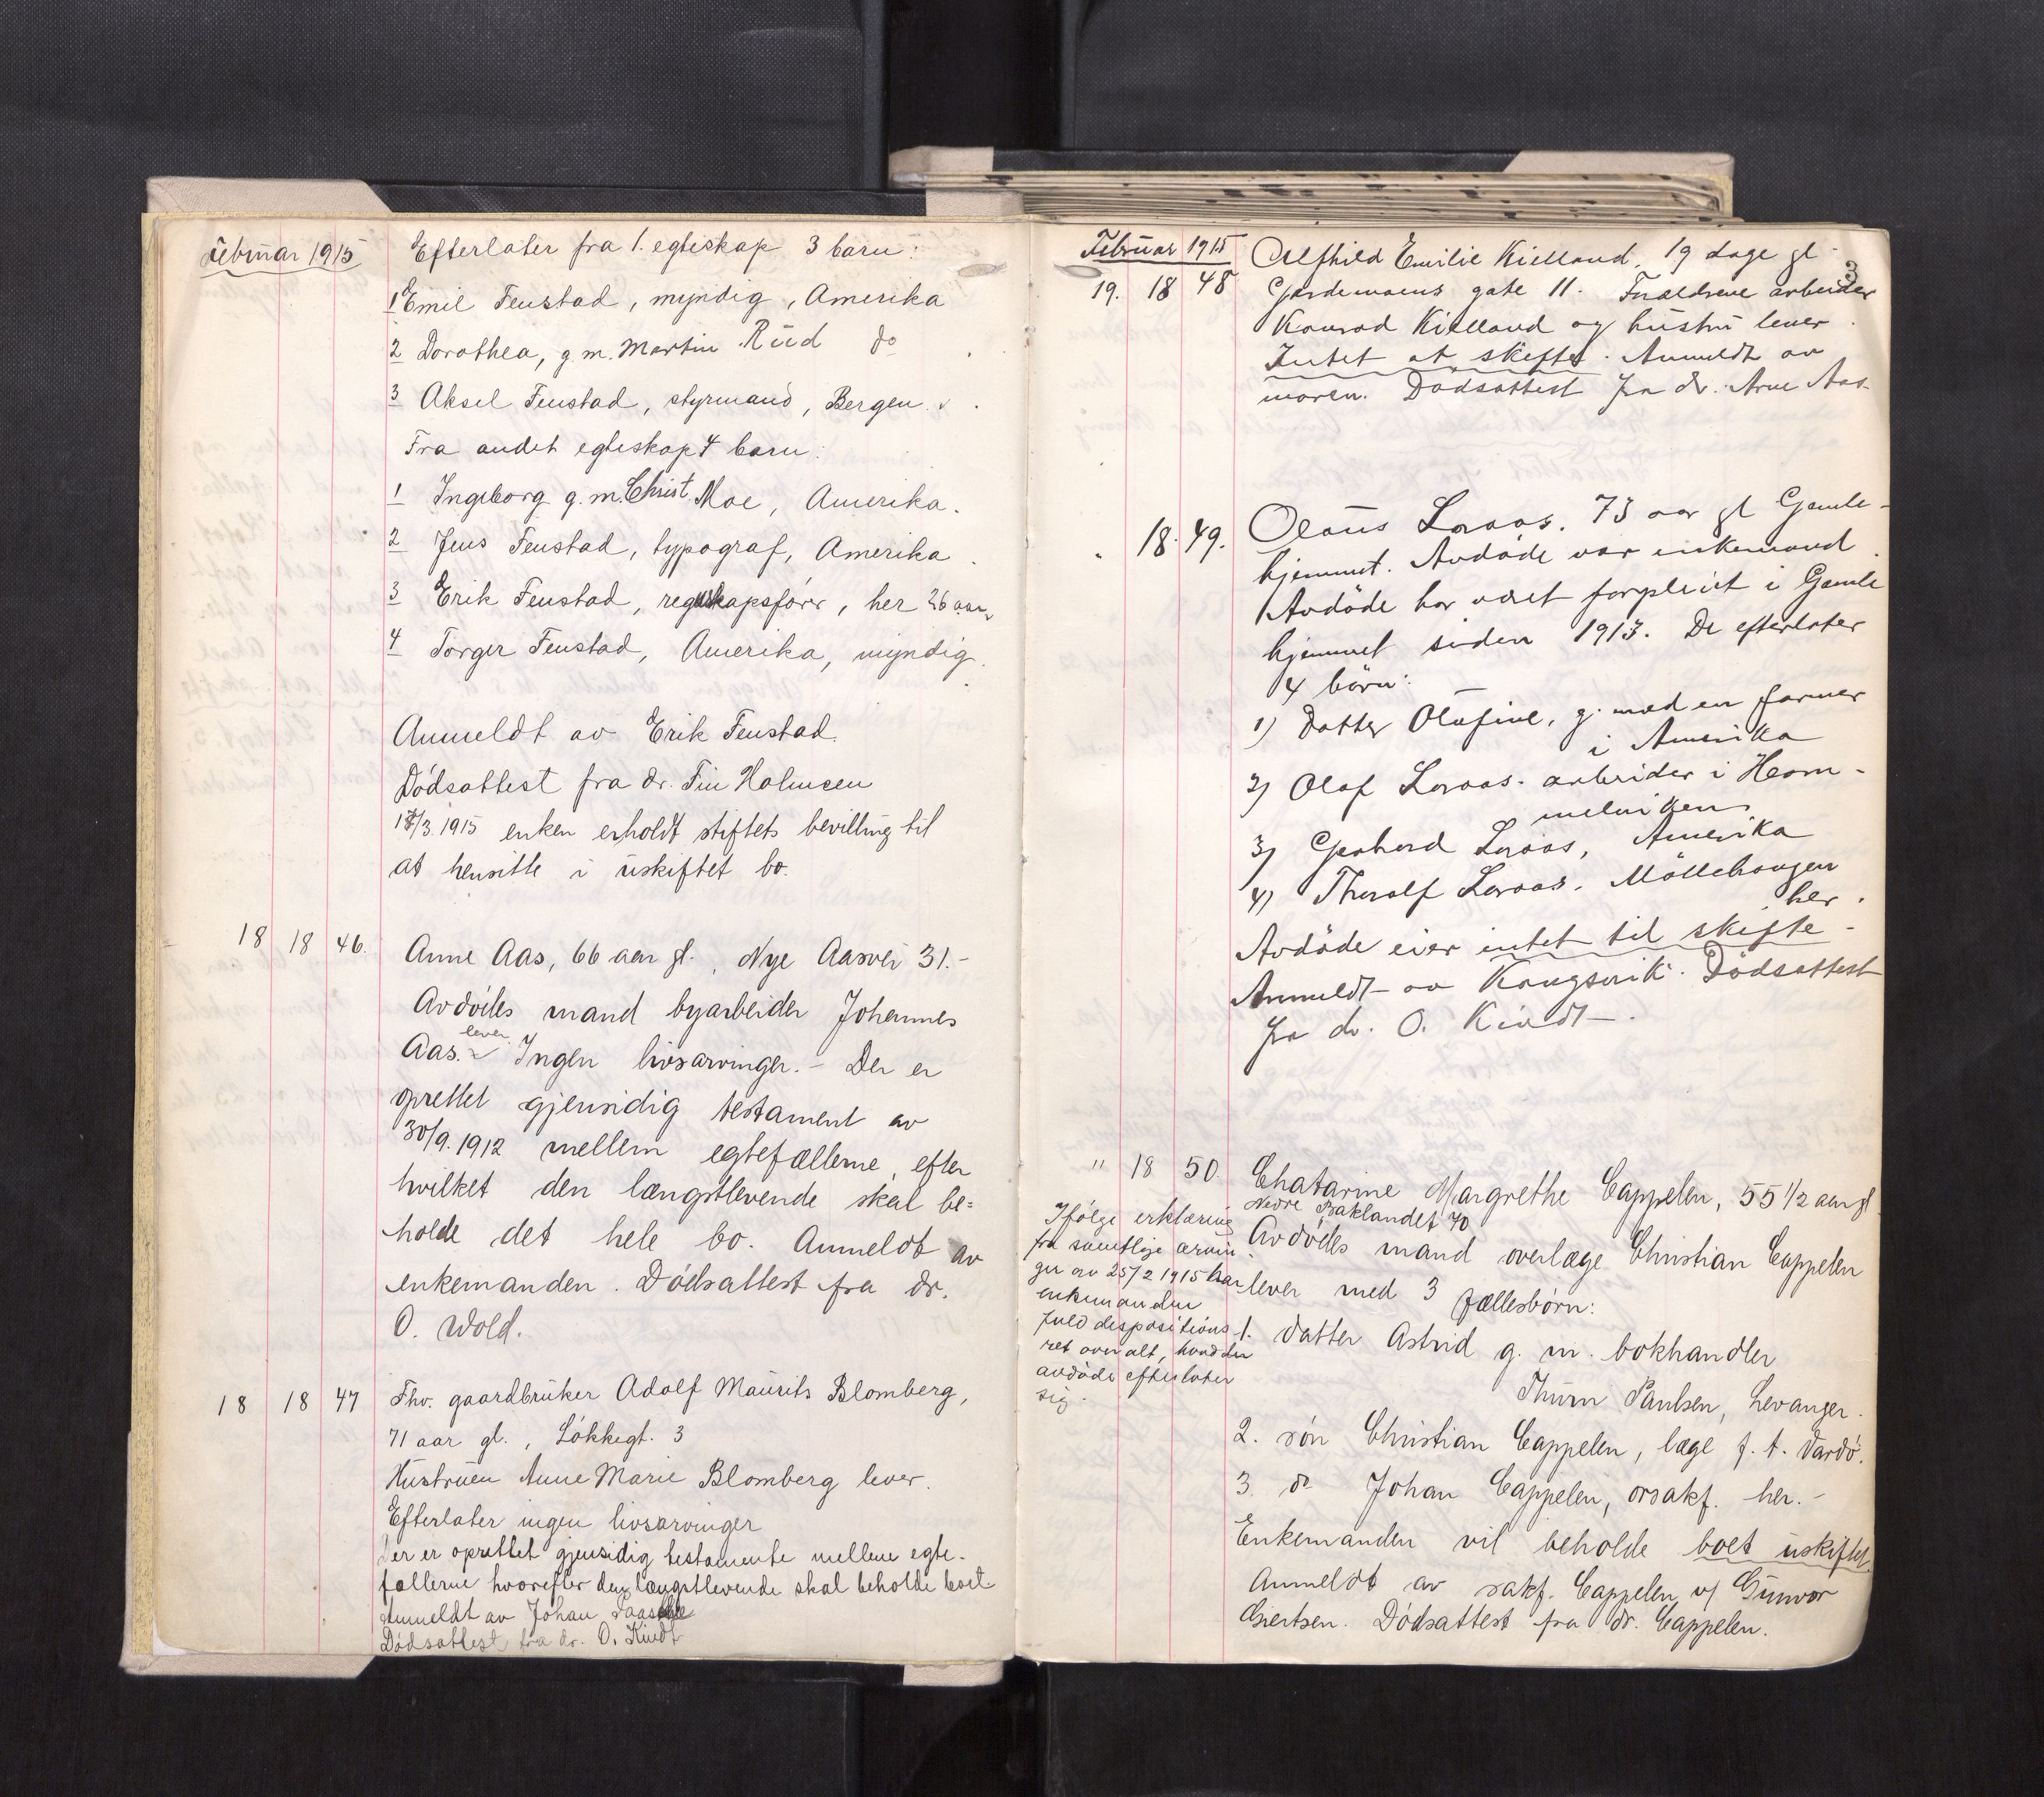 Februar 1915
Efterlater fra 1. egteskap 3 barn:
1 Emil Fenstad, myndig, Amerika
2 Dorothea, g. m. Martin Rūd do
3 Aksel Fenstad, styrmand, Bergen
Fra andet egteskap 4 barn:
1 Ingeborg g. m. Christ. Moe, Amerika.
2 Jens Fenstad, typograf, Amerika
3 Erik Fenstad, regnskapsfører, her 26 aar
4 Torger Fenstad, Amerika, myndig.
Anmeldt av Erik Fenstad.
Dödsattest fra dr. Fin Holmsen
/3 1915 enken erholdt stiftets bevilling til
at hensitte i uskiftet bo.
18 18 46. Anne Aas, 66 aar gl., Nye Aasvei 31.-
Avdödes mand byarbeider Johannes
Aas. lever Ingen livsarvinger. - Der er
oprettet gjensidig testament av
30/9. 1912 mellem egtefællerne, efter
hvilket den længstlevende skal be=
holde det hele bo. Anmeldt av
enkemanden. Dödsattest fra dr.
O. Wold.
18 18 47 Fhv. gaardbruker Adolf Maurits Blomberg,
71 aar gl., Lökkegt. 3
Hustruen Anne Marie Blomberg lever.
Efterlater ingen livsarvinger
Der er oprettet gjensidig testamente mellem egte-
fællerne hvorefter den længstlevende skal beholde boet
Anmeldt av Johan
Dödsattest fra dr. O. Kindt
3
Februar 1915
19. 18 48 Alfhild Emilie Kielland, 19 dage gl
gate 11. Forældrene arbeider
Konrad Kielland og hustru lever.
Intet at skifte. Anmeldt av
moren. Dödsattest fra dr. Arne Aas.
" 18. 49. Olaus Loraas. 73 aar gl Gamle-
hjemmet. Avdöde var enkemand.
Avdöde har været forpleiet i Gamle
hjemmet siden 1913. De efterlater
4 börn:
1) Datter Olufine, g. med en farmer
i Amerika
2) Olaf Loraas. arbeider i Hom-
melviken
3) Gerhard Loraas, Amerika
4) Thoralf Loraas. Möllebakken
her.
Avdöde eier intet til skifte.
Anmeldt av Kongsvik. Dödsattest
fra dr. O. Kindt.
" 18 50. Chatarine Margrethe Cappelen, 55 1/2 aar gl.
Nedre Baklandet 70
Avdödes mand overlæge Christian Cappelen
lever med 3 fællesbörn:
1. datter Astrid g. m. bokhandler
Thurn Paulsen, Levanger.
2. sön Christian Cappelen, læge f. t. Vardö.
3. do Johan Cappelen, orsakf. her. -
Enkemanden vil beholde boet uskiftet.
Anmeldt av sakf. Cappelen v/ Gunvor
Giertsen. Dödsattest fra dr. Cappelen.
Ifölge erklæring
fra samtlige arvin
ger av 25/2 1915 har
enkemanden
fuld dispositions
ret over alt, hvad den
avdöde efterlater
sig.